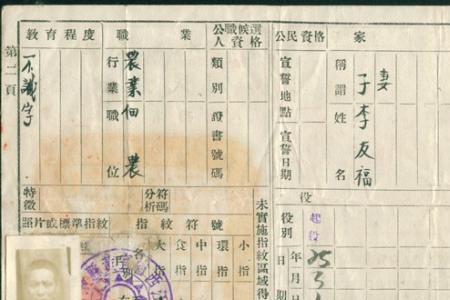 家
妻
稱謂
子
姓名
李友福
公民資格
宣誓地點
宣誓日期
公職候選人資格
類別
證書號碼
職業
行業
農業
職位
佃農
教育程度
不識字
第二頁
役
役別
起役
日期
年
月
日
25
5
未實施指紋區域得
特徵
分析
符碼
照片或標準指紋
指紋符號
大指
食指
中指
環指
小指